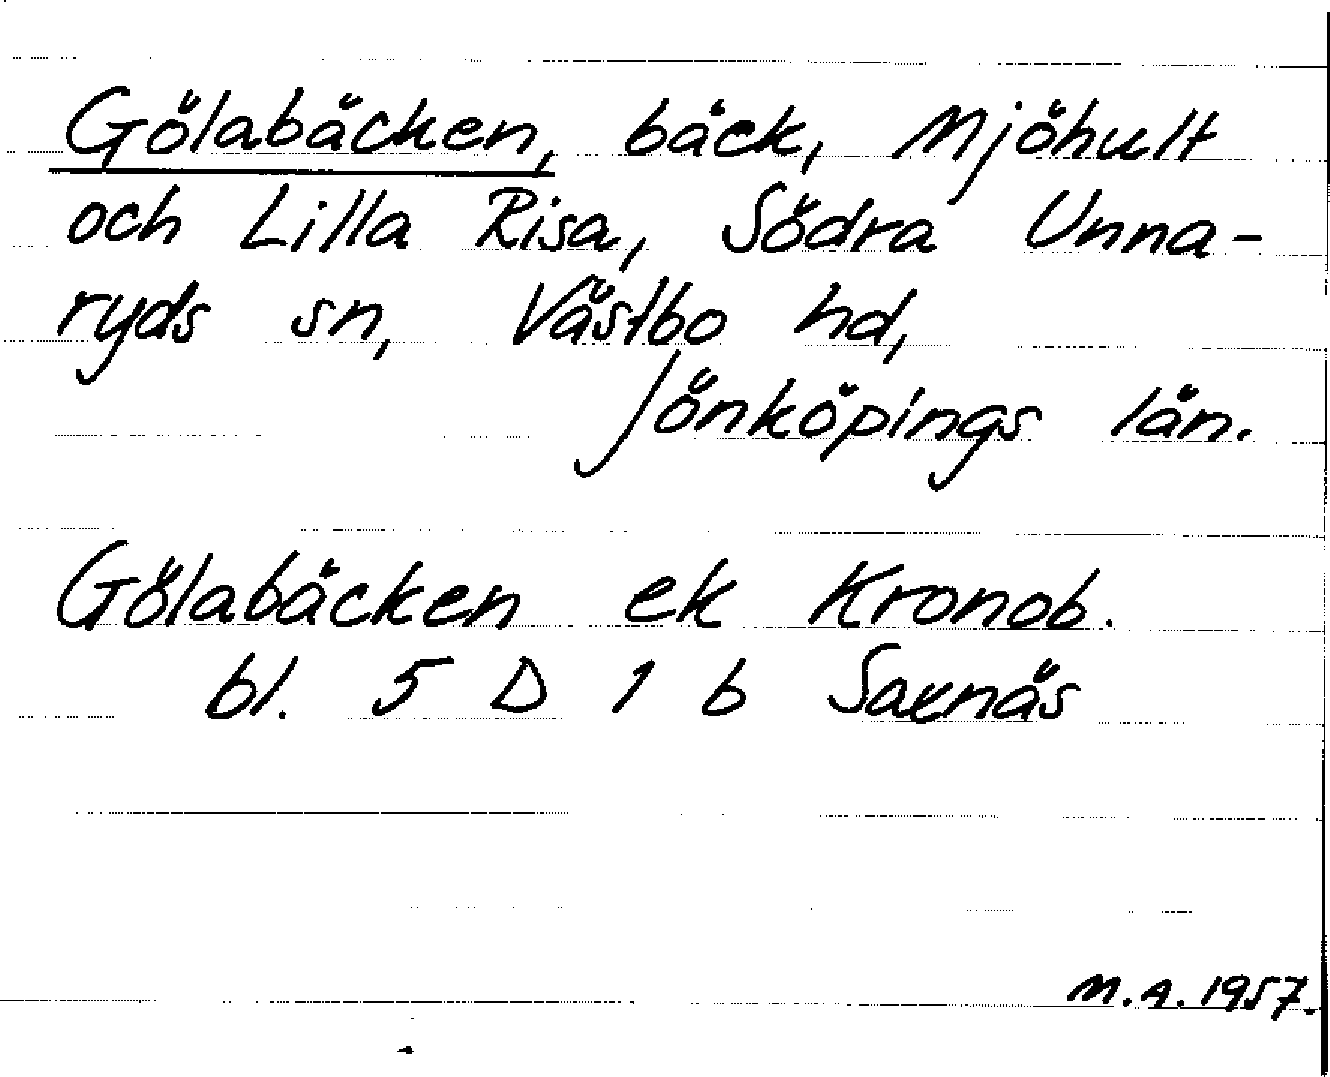 Gölabäcken, bäck, Mjöhult
och Lilla Risa, Södra Unna-
ryds sn, Västbo hd,
Jönköpings län.
Gölabäcken ek Kronob.
bl. 5 D 1 b Saxnäs
M.A. 1957.